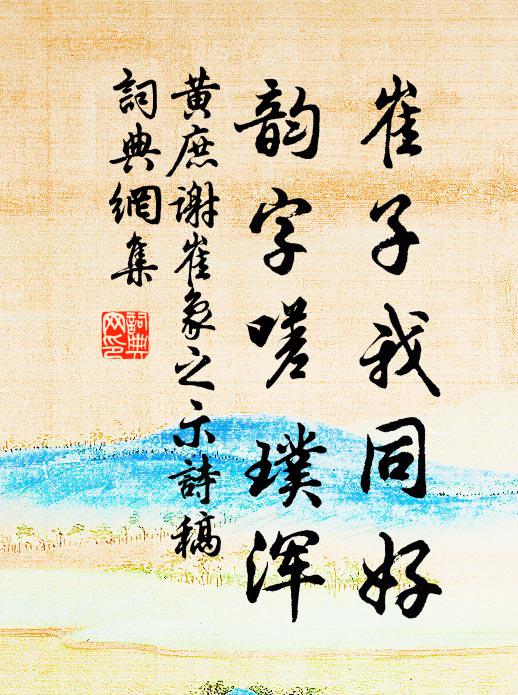 崔子我同好
韵字嗟璞浑
黄庶谢崔象之示詩稿
詞典網集
詞典
网印